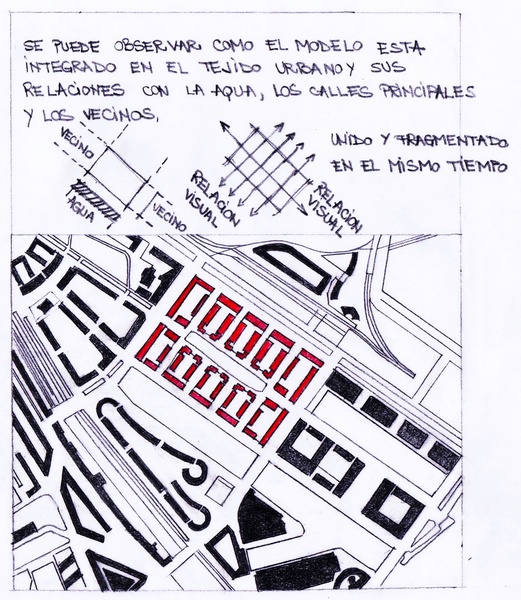 SE PUEDE OBSERVAR COMO EL MODELO ESTA
INTEGRADO EN EL TEJIDO URBANO Y SUS
RELACIONES CON LA AQUA, LOS CALLES PRINCIPALES
Y LOS VECINOS,
UNIDO Y FRAGMENTADO
EN EL MISMO TIEMPO
VECINO
AQUA
VECINO
RELACION
VISUAL
RELACION
VISUAL